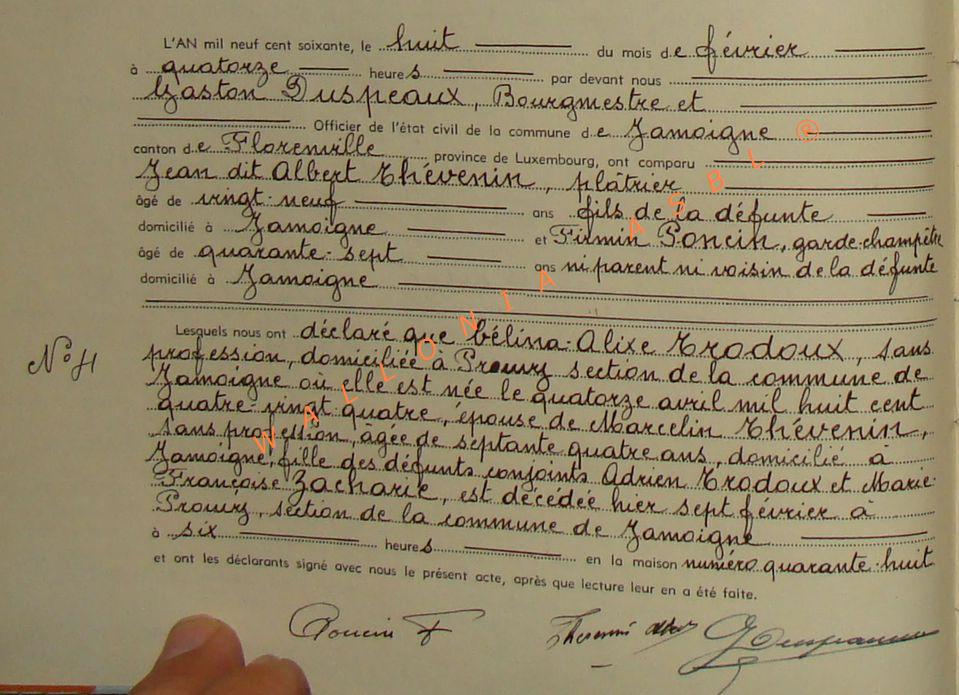 L'AN mil neuf cent soixante, le huit du mois de février
à quatorze heures par devant nous
Gaston Duspeaux, Bourgmestre et
Officier de l'état civil de la commune de Jamoigne
canton de Florenville province de Luxembourg, ont comparu
Jean dit Albert Thévenin, plâtrier
âgé de vingt-neuf ans fils de la défunte
domicilié à Jamoigne et Firmin Poncin, garde-champêtre
âgé de quarante-sept ans ni parent ni voisin de la défunte
domicilié à Jamoigne
Lesquels nous ont déclaré que Célina-Alixe Trodoux, sans
N° 4
profession, domiciliée à Prouvy section de la commune de
Jamoigne où elle est née le quatorze avril mil huit cent
quatre-vingt quatre, épouse de Marcelin Thévenin,
sans profession, âgée de septante quatre ans, domicilié à
Jamoigne, fille des défunts conjoints Adrien Trodoux et Marie-
Françoise Zacharie, est décédée hier sept février à
Prouvy, section de la commune de Jamoigne
à six heures en la maison numéro quarante-huit
et ont les déclarants signé avec nous le présent acte, après que lecture leur en a été faite.
Poncin F
WALLONIA ASBL ®